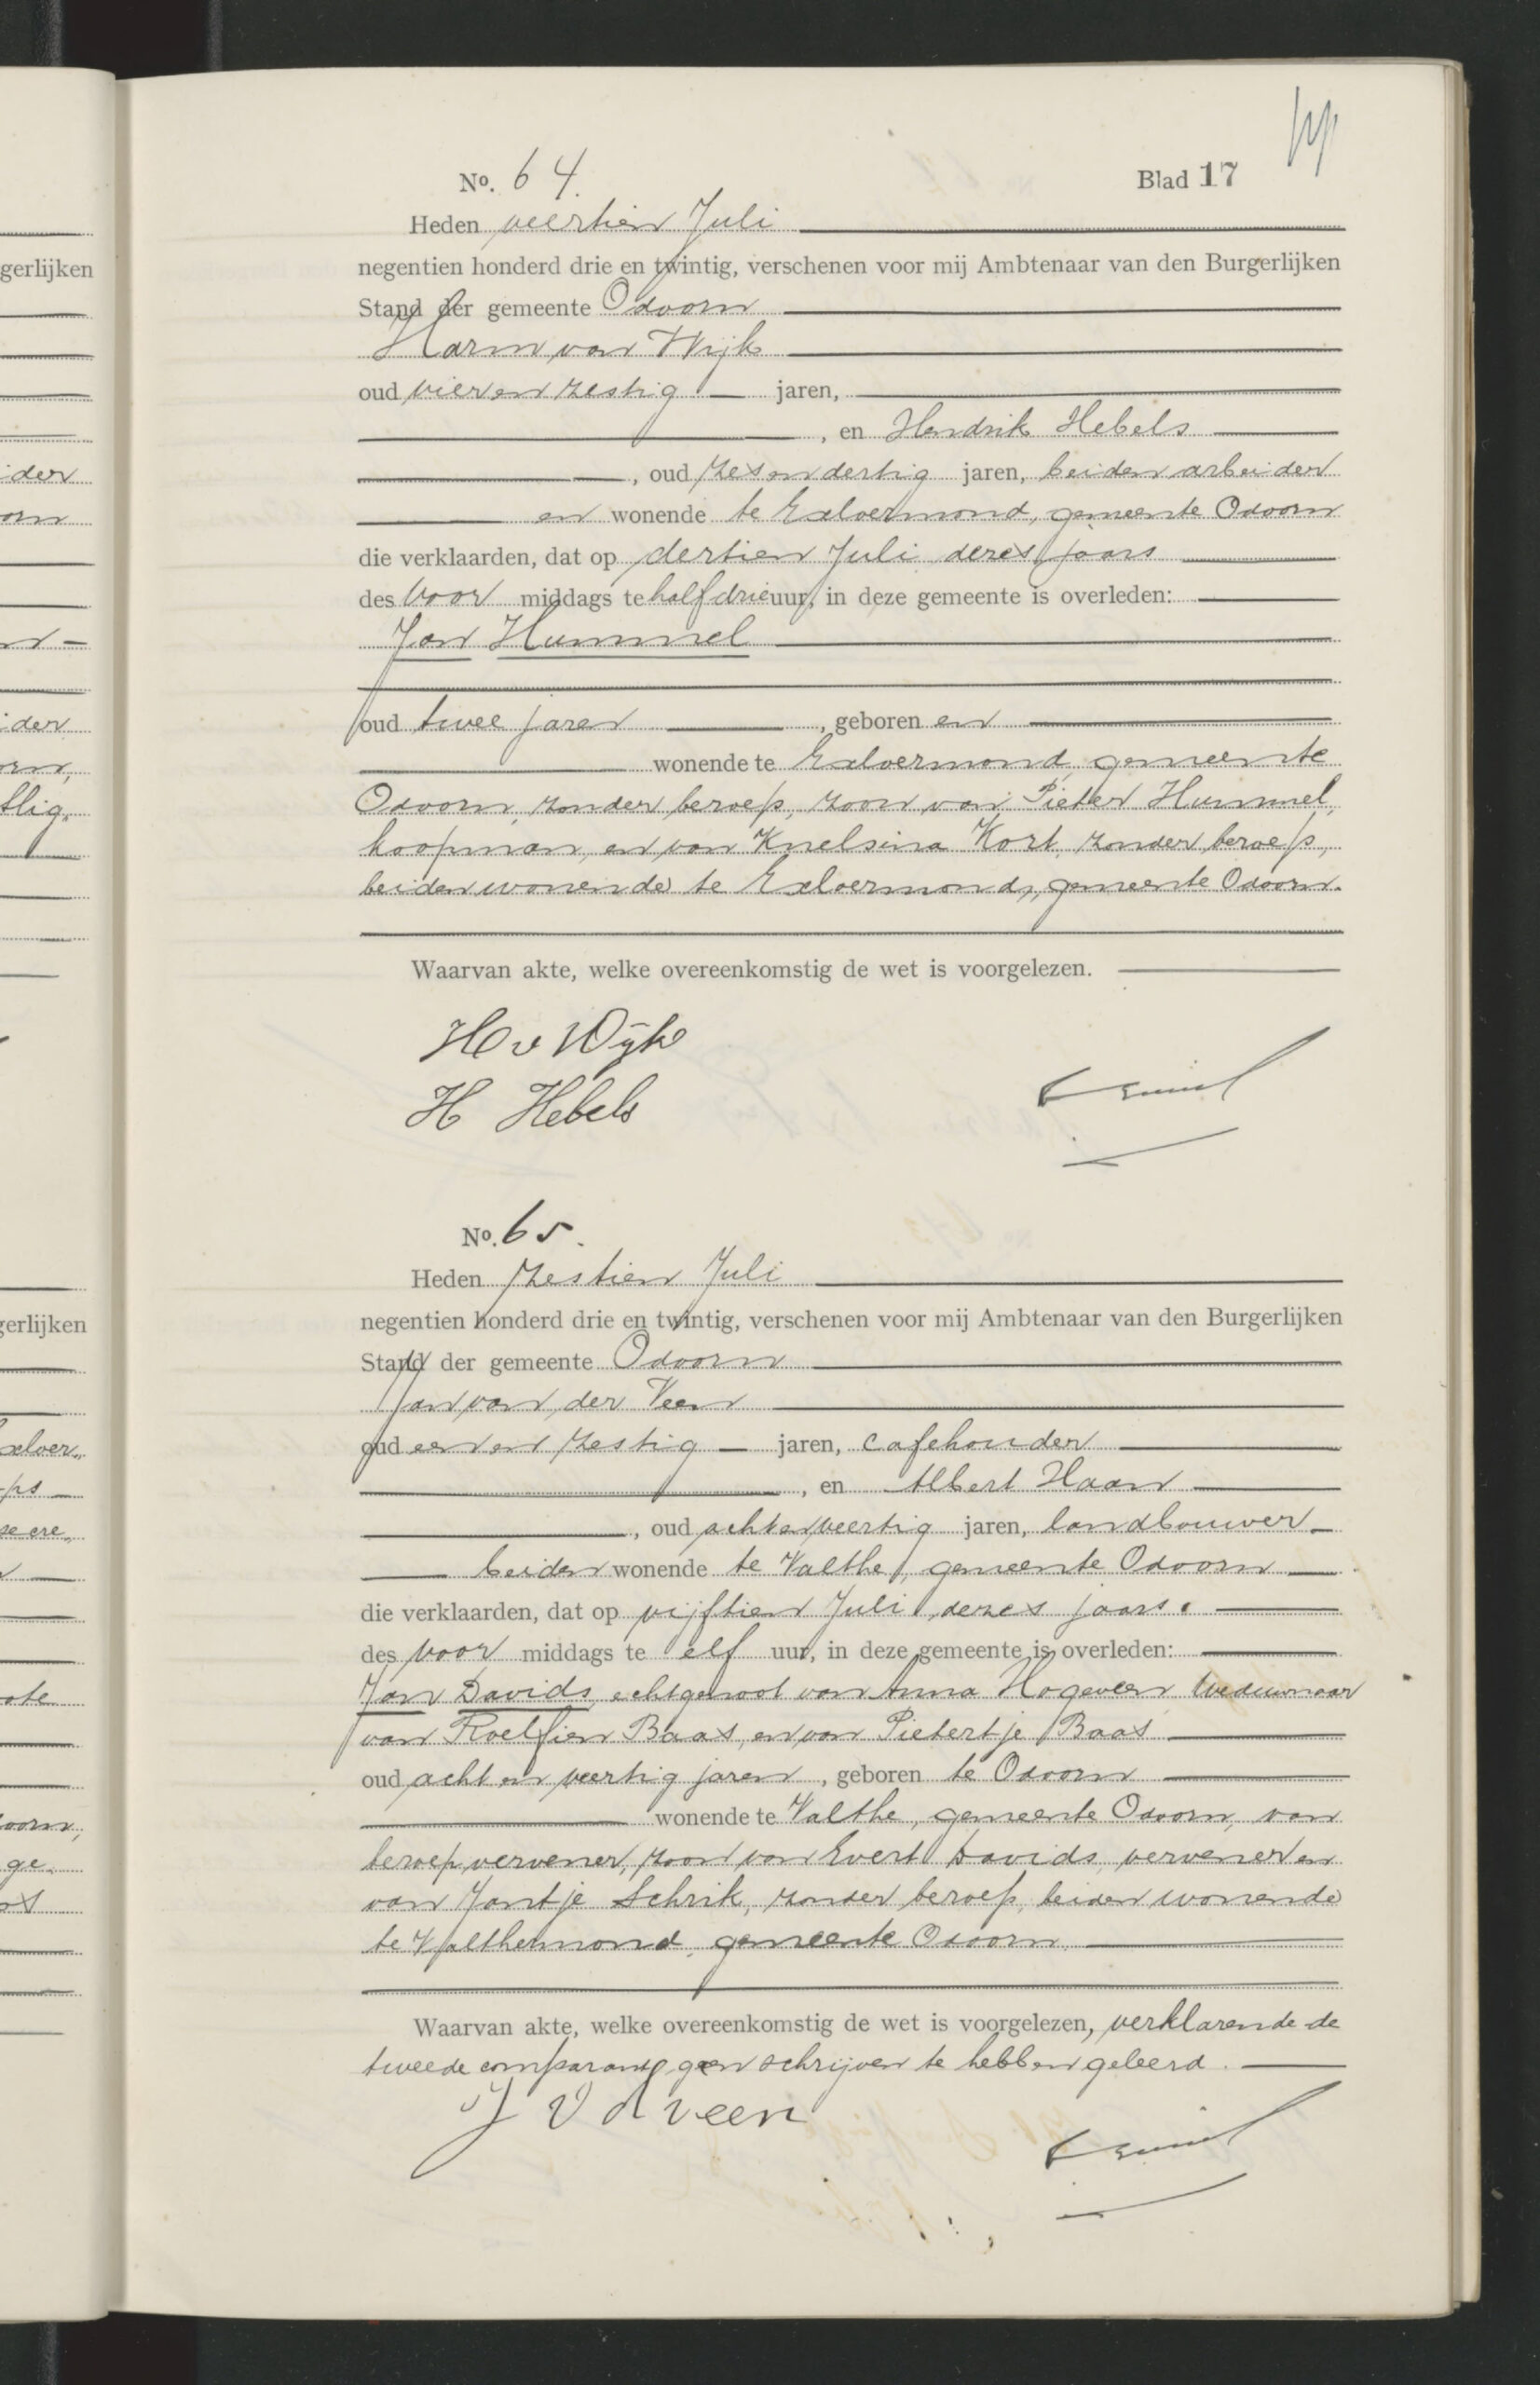 No. 64.
Blad 17
Heden veertien Juli
negentien honderd drie en twintig, verschenen voor mij Ambtenaar van den Burgerlijken
Stand der gemeente Odoorn
Harm van Wijk
oud vier en zestig jaren,
, en Hendrik Hebels
, oud zes en dertig jaren, beiden arbeider
en wonende te Exloermond, gemeente Odoorn
die verklaarden, dat op dertien Juli dezes jaars
des voor middags te half drie uur, in deze gemeente is overleden:
Jan Hummel
oud twee jaren, geboren en
wonende te Exloermond, gemeente
Odoorn, zonder beroep, zoon van Pieter Hummel,
koopman, en van Knelsina Kort, zonder beroep,
beiden wonende te Exloermond, gemeente Odoorn.
Waarvan akte, welke overeenkomstig de wet is voorgelezen.
H v Wijk
H Hebels
No. 65.
Heden zestien Juli
negentien honderd drie en twintig, verschenen voor mij Ambtenaar van den Burgerlijken
Stand der gemeente Odoorn
Jan van der Veen
oud een en zestig jaren, cafehouder
, en Albert Haan
, oud acht en veertig jaren, landbouwer
beiden wonende te Valthe, gemeente Odoorn
die verklaarden, dat op vijftien Juli dezes jaars.
des voor middags te elf uur, in deze gemeente is overleden:
Jan Davids, echtgenoot van Anna Hogeveen weduwnaar
van Roelfien Baas, en van Pietertje Baas
oud acht en veertig jaren, geboren te Odoorn
wonende te Valthe, gemeente Odoorn, van
beroep vervener, zoon van Evert Davids, vervener en
van Jantje Schrik, zonder beroep, beiden wonende
te Valthermond, gemeente Odoorn
Waarvan akte, welke overeenkomstig de wet is voorgelezen, verklarende de
tweede comparant geen schrijven te hebben geleerd.
J V d Veen